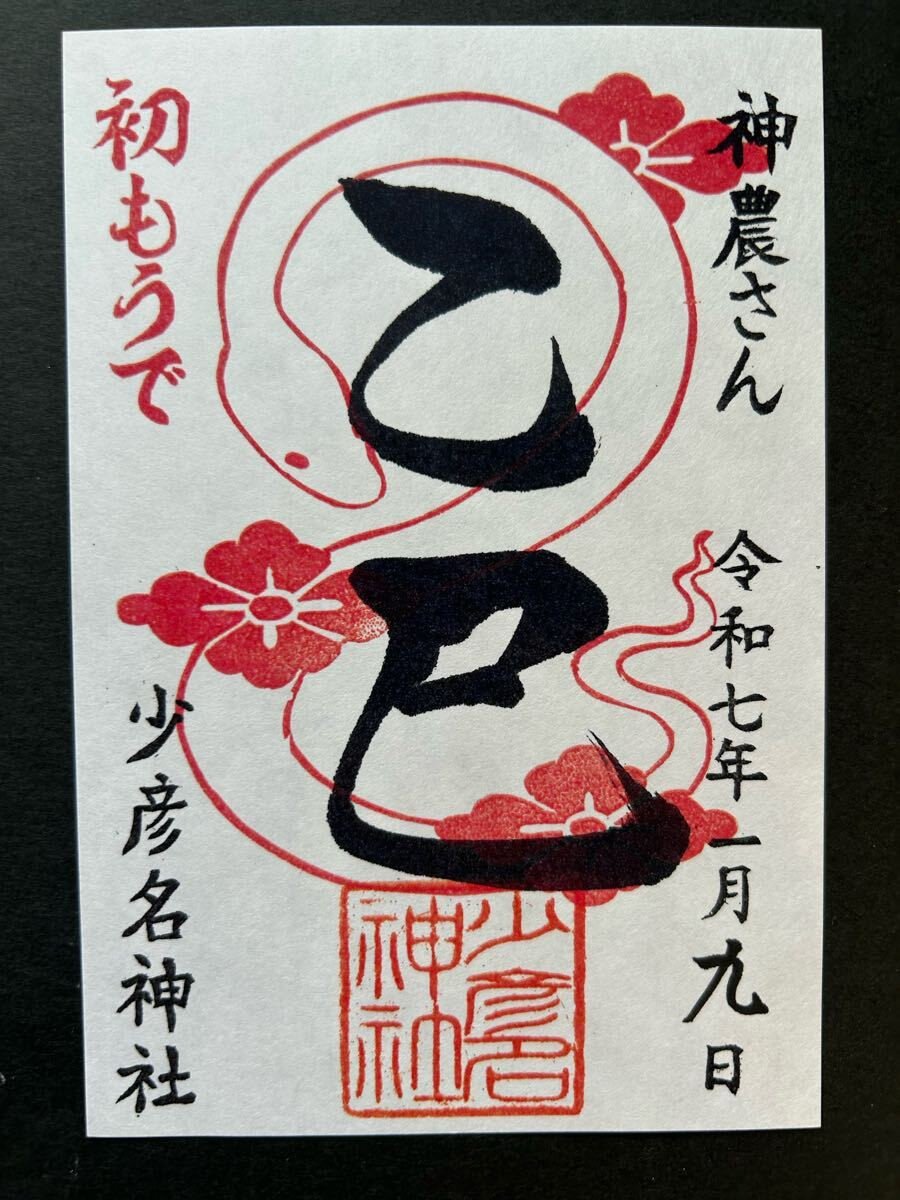 神農さん
令和七年一月九日
乙巳
少彦名
神社
初もうで
少彦名神社